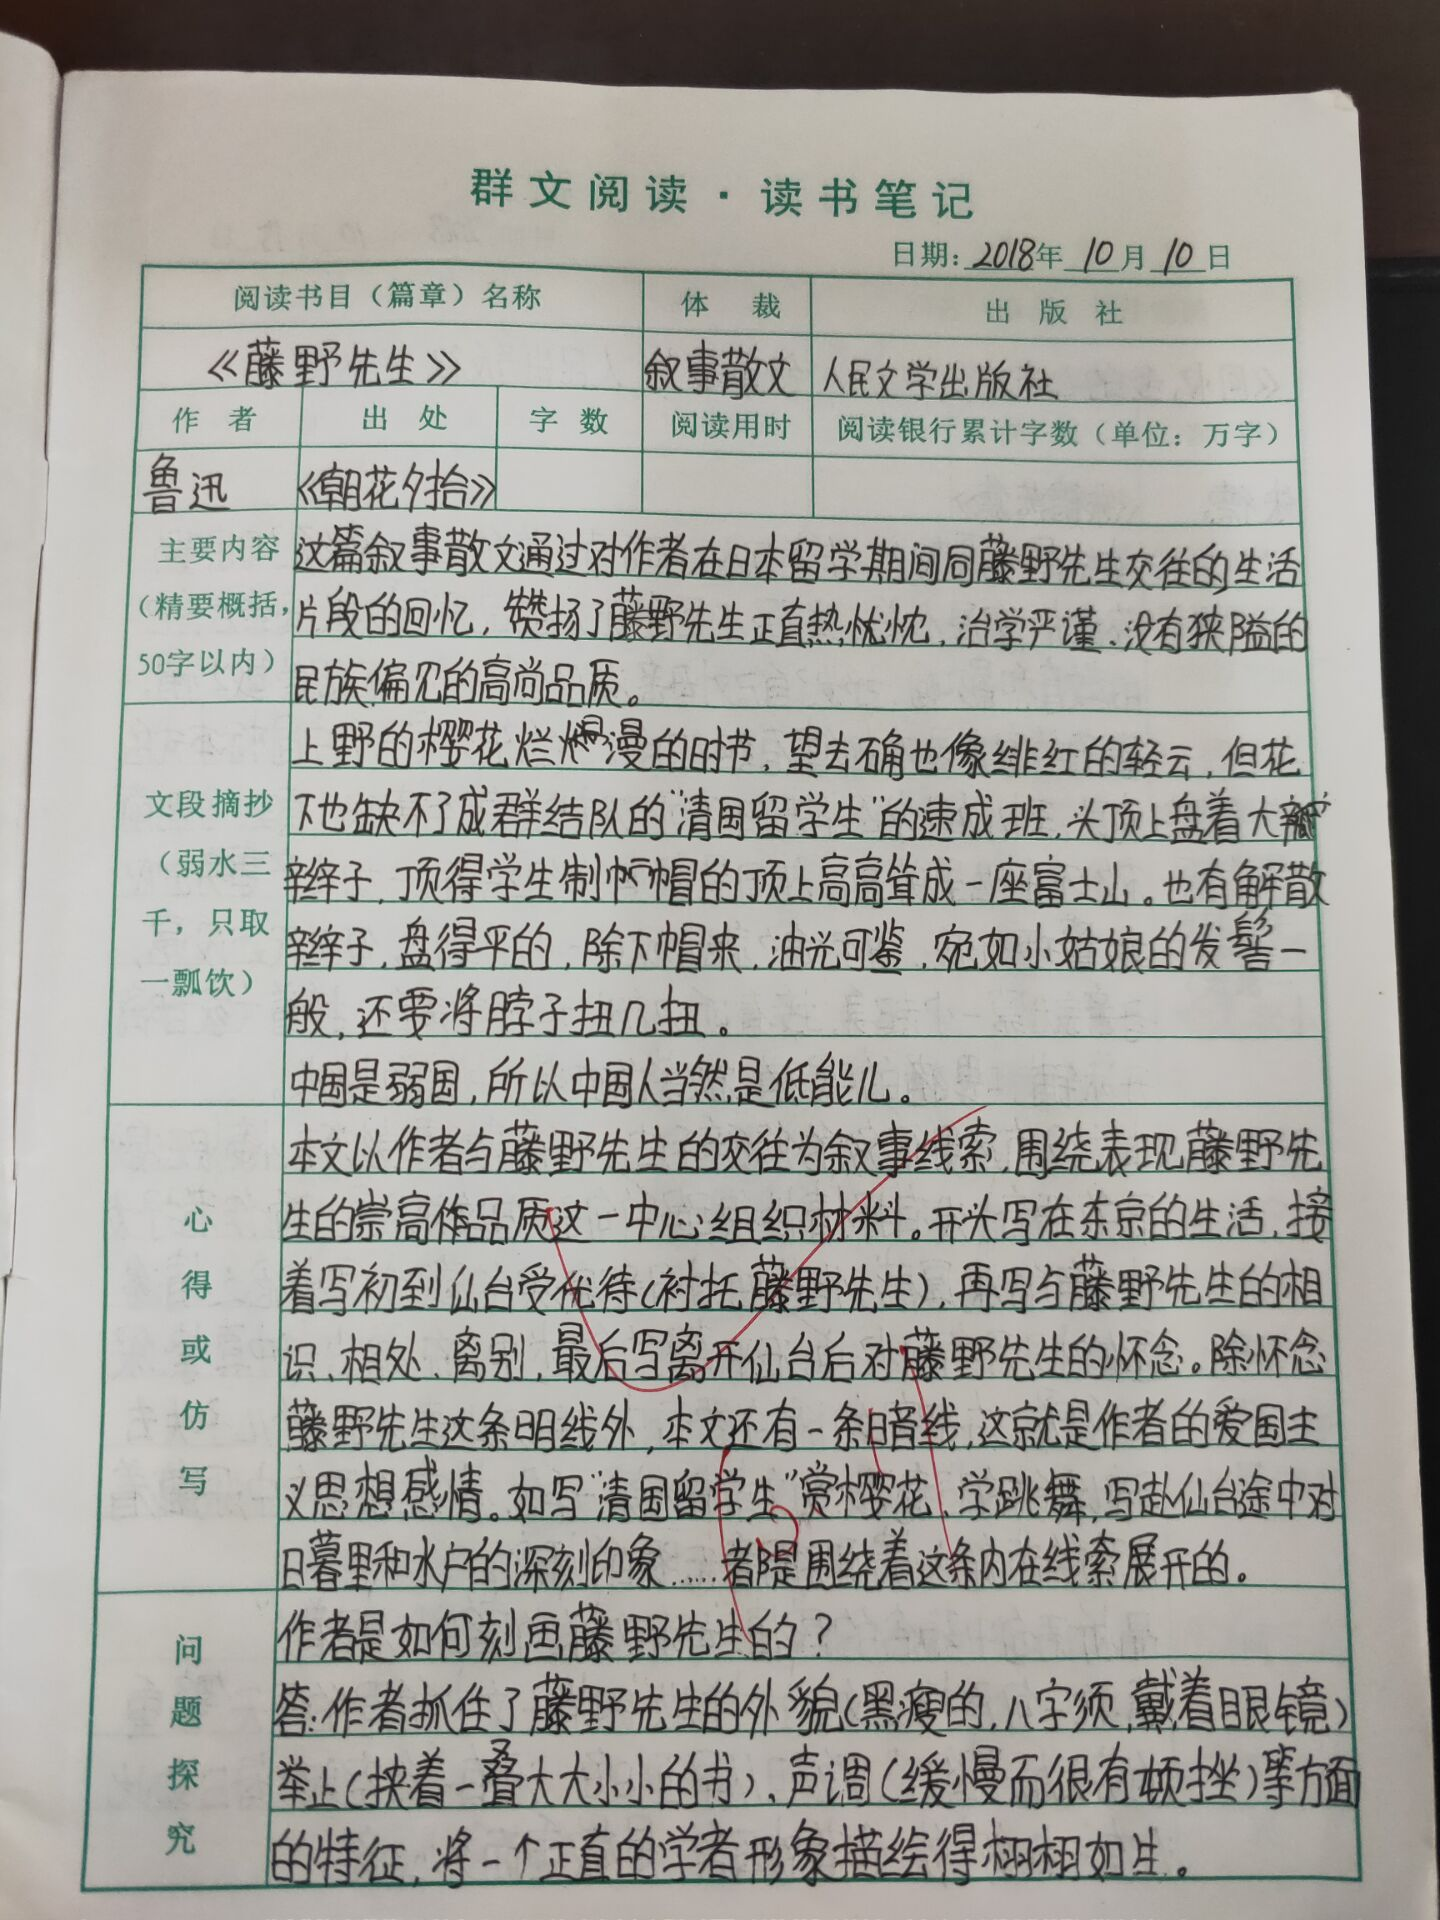 群文阅读·读书笔记
日期：2018年10月10日
阅读书目（篇章）名称 体裁 出版社
《藤野先生》 叙事散文 人民文学出版社
作者 出处 字数 阅读用时 阅读银行累计字数（单位：万字）
鲁迅 《朝花夕拾》
主要内容
（精要概括，
50字以内）
这篇叙事散文通过对作者在日本留学期间同藤野先生交往的生活
片段的回忆，赞扬了藤野先生正直热忱，治学严谨、没有狭隘的
民族偏见的高尚品质。
文段摘抄
（弱水三
千，只取
一瓢饮）
上野的樱花烂漫的时节，望去确也像绯红的轻云，但花
下也缺不了成群结队的“清国留学生”的速成班，头顶上盘着大
辫子，顶得学生制帽的顶上高高耸成一座富士山。也有解散
辫子，盘得平的，除下帽来，油光可鉴，宛如小姑娘的发髻一
般，还要将脖子扭几扭。
中国是弱国，所以中国人当然是低能儿。
心得或仿写
本文以作者与藤野先生的交往为叙事线索，围绕表现藤野先
生的崇高品质这一中心组织材料。开头写在东京的生活，接
着写初到仙台受优待（衬托藤野先生），再写与藤野先生的相
识、相处、离别，最后写离开仙台后对藤野先生的怀念。除怀念
藤野先生这条明线外，本文还有一条暗线，这就是作者的爱国主
义思想感情。如写“清国留学生”赏樱花、学跳舞，写赴仙台途中对
日暮里和水户的深刻印象……都是围绕着这条内在线索展开的。
问题探究
作者是如何刻画藤野先生的？
答：作者抓住了藤野先生的外貌（黑瘦的，八字须，戴着眼镜）
举止（挟着一叠大大小小的书）、声调（缓慢而很有顿挫）等方面
的特征，将一个正直的学者形象描绘得栩栩如生。